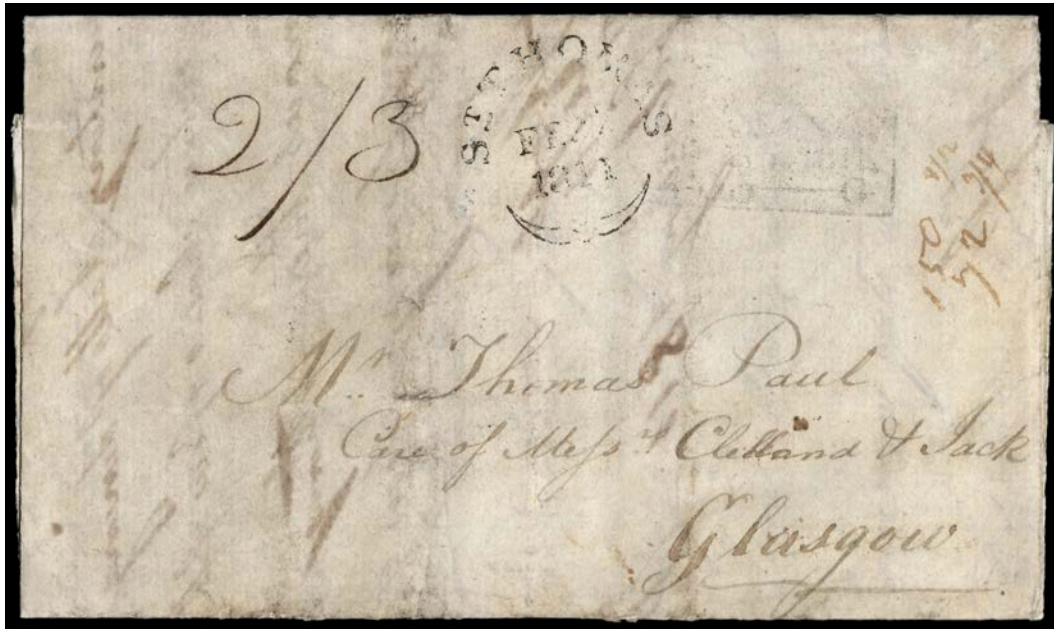 2/3
ST THOMAS
FE
18
150
52 3/4
Mr. Thomas Paul
Care of Messrs Clelland & Jack
Glasgow